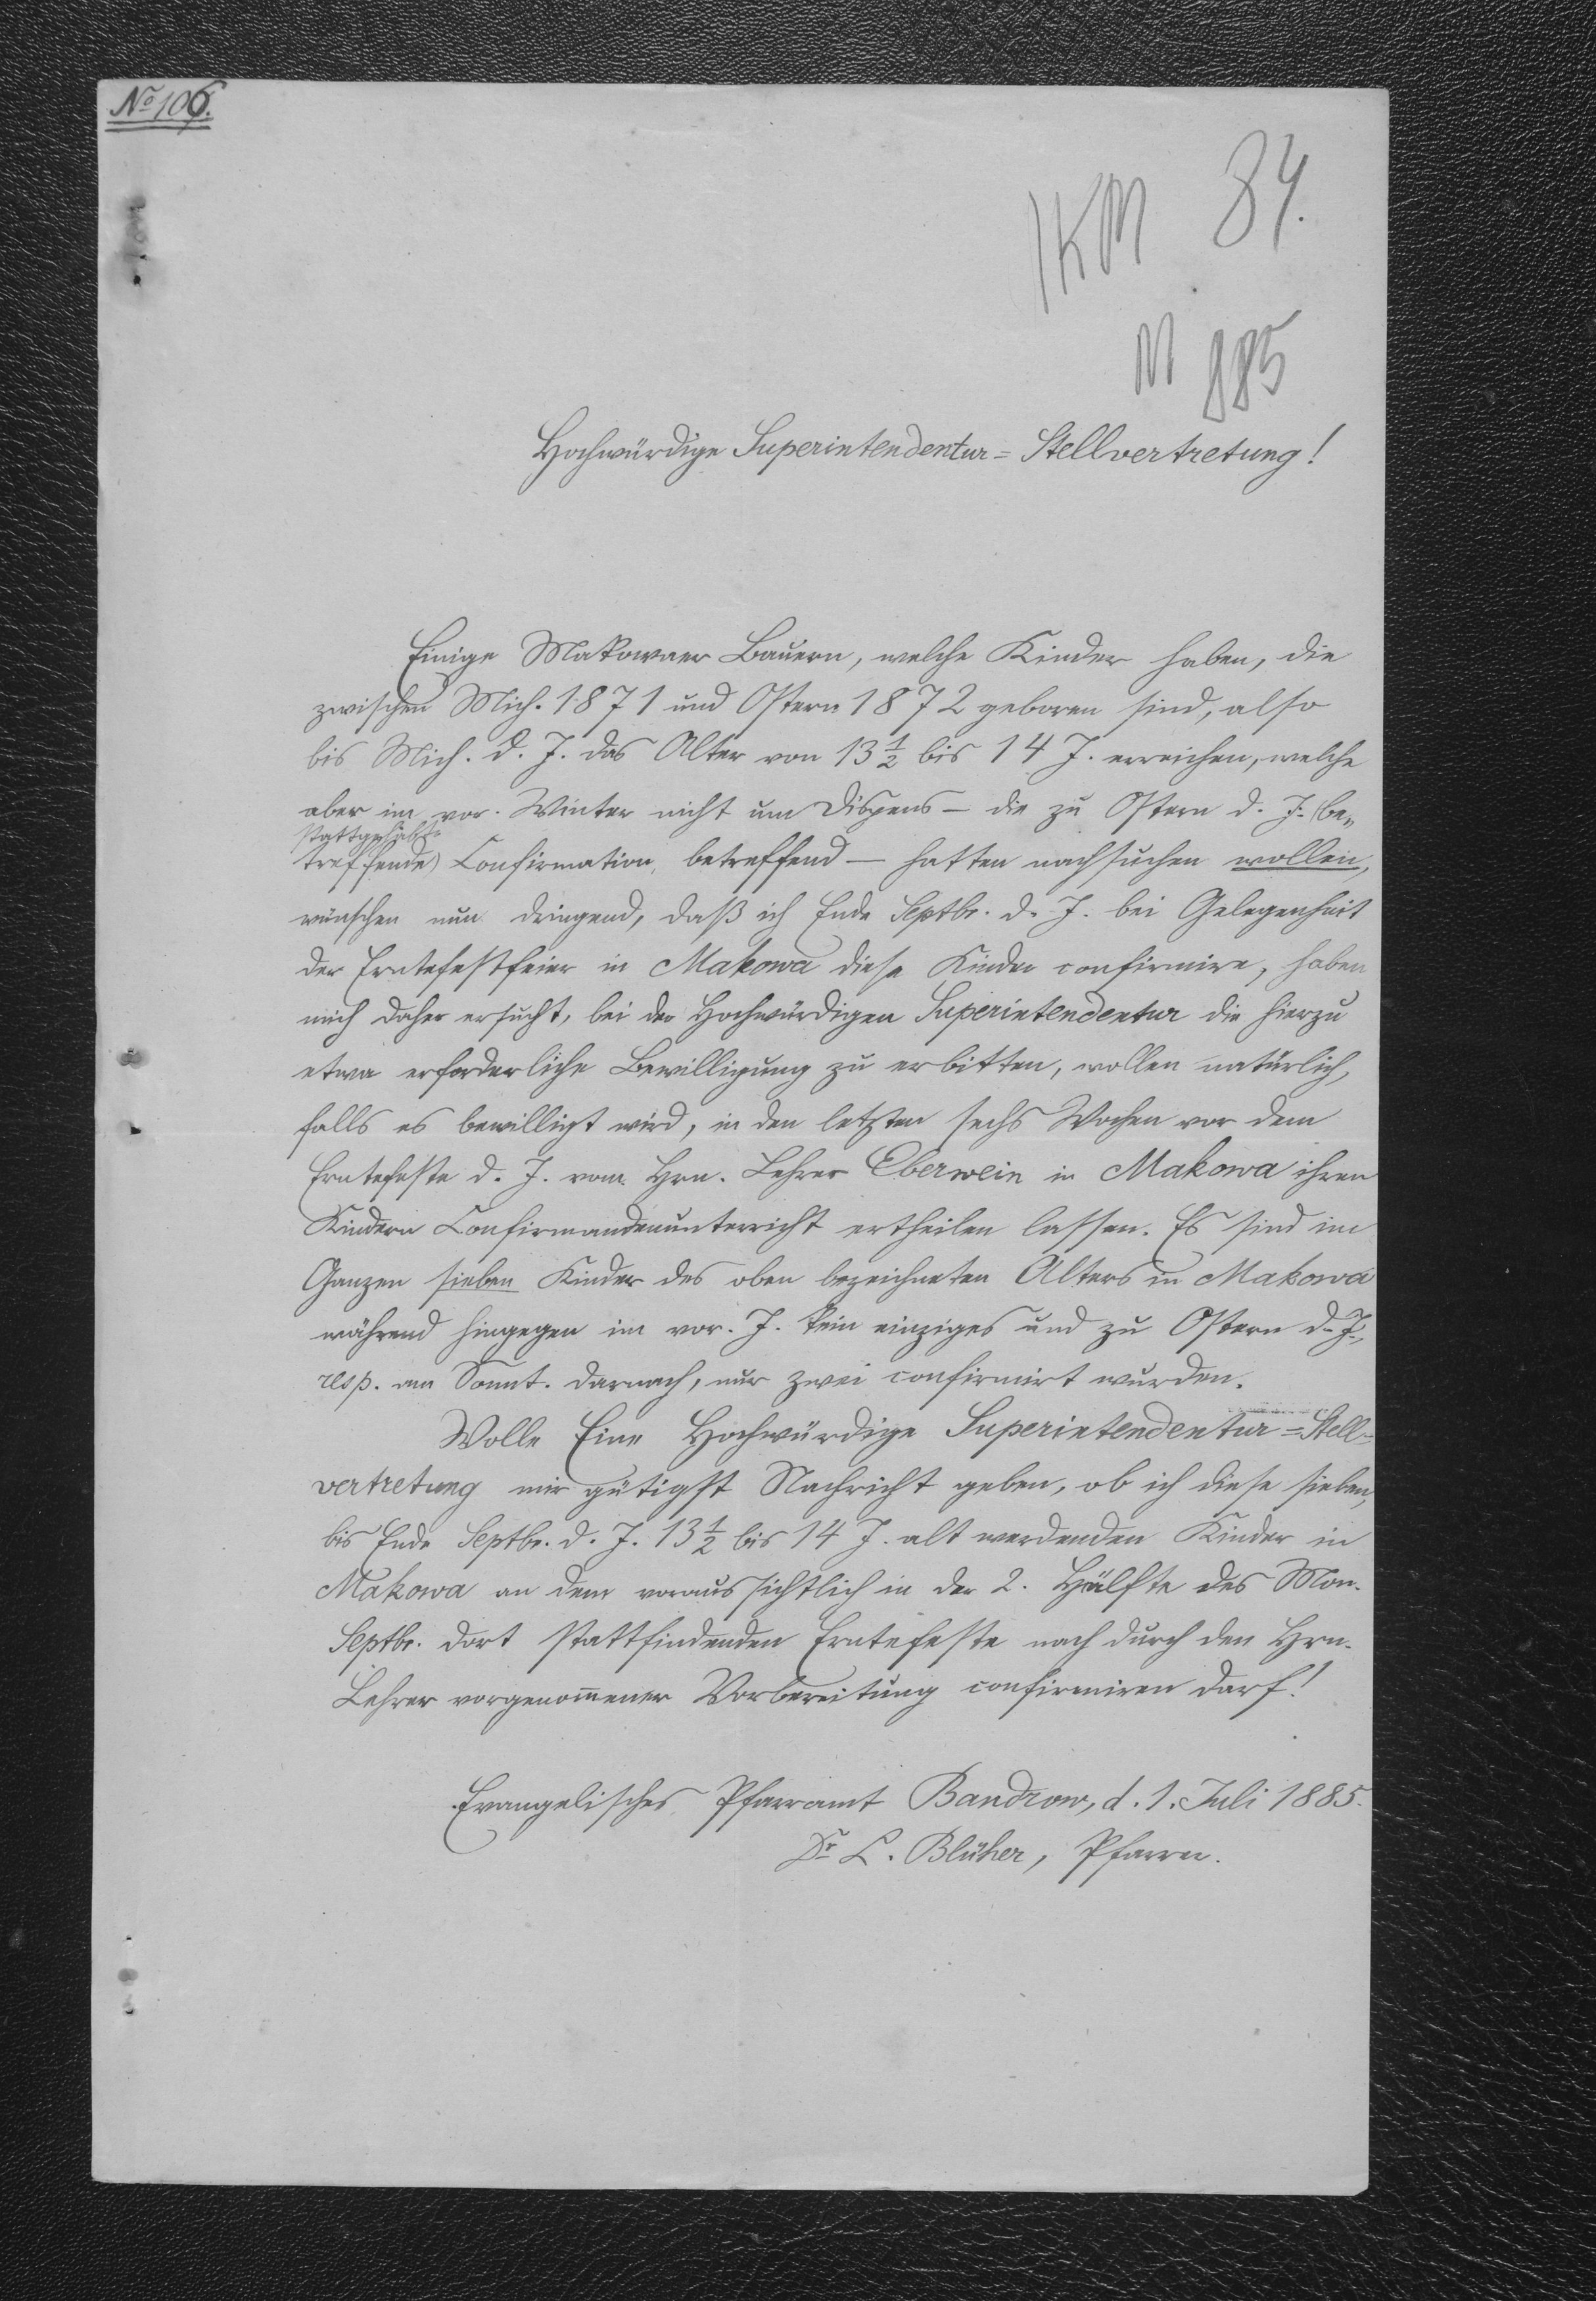 No 106.
84.
885
Hochwürdige Superintendentur=Stellvertretung!
Einige Makowaer Bauern, welche Kinder haben, die
zwischen Mich. 1871 und Ostern 1872 geboren sind, also
bis Mich. d. J. das Alter von 13 1/2 bis 14 J. erreichen, welche
aber im vor. Winter nicht um Dispens – die zu Ostern d. J. (be„
stattgehabte
treffende) Confirmation betreffend – hatten nachsuchen wollen,
wünschen nun dringend, daß ich Ende Septbr. d. J. bei Gelegenheit
der Erntefestfeier in Makowa diese Kinder confirmire, haben
mich daher ersucht, bei der Hochwürdigen Superintendentur die hierzu
etwa erforderliche Bewilligung zu erbitten, wollen natürlich,
falls es bewilligt wird, in den letzten sechs Wochen vor dem
Erntefeste d. J. vom Hrn. Lehrer Eberwein in Makowa ihren
Kindern Confirmandenunterricht ertheilen lassen. Es sind im
Ganzen sieben Kinder des oben bezeichneten Alters in Makowa
während hingegen im vor. J. kein einziges und zu Ostern d. J.,
resp. am Sonnt. darnach, nur zwei confirmirt wurden.
Wolle Eine Hochwürdige Superintendentur=Stell=
vertretung mir gütigst Nachricht geben, ob ich diese sieben,
bis Ende Septbr. d. J. 13 1/2 bis 14 J. alt werdenden Kinder in
Makowa an dem voraussichtlich in der 2. Hälfte des Mon.
Septbr. dort stattfindenden Erntefeste nach durch den Hrn.
Lehrer vorgenommener Vorbereitung confirmiren darf!
Evangelisches Pfarramt Bandrow, d. 1. Juli 1885.
Dr L. Blüher, Pfarrer.